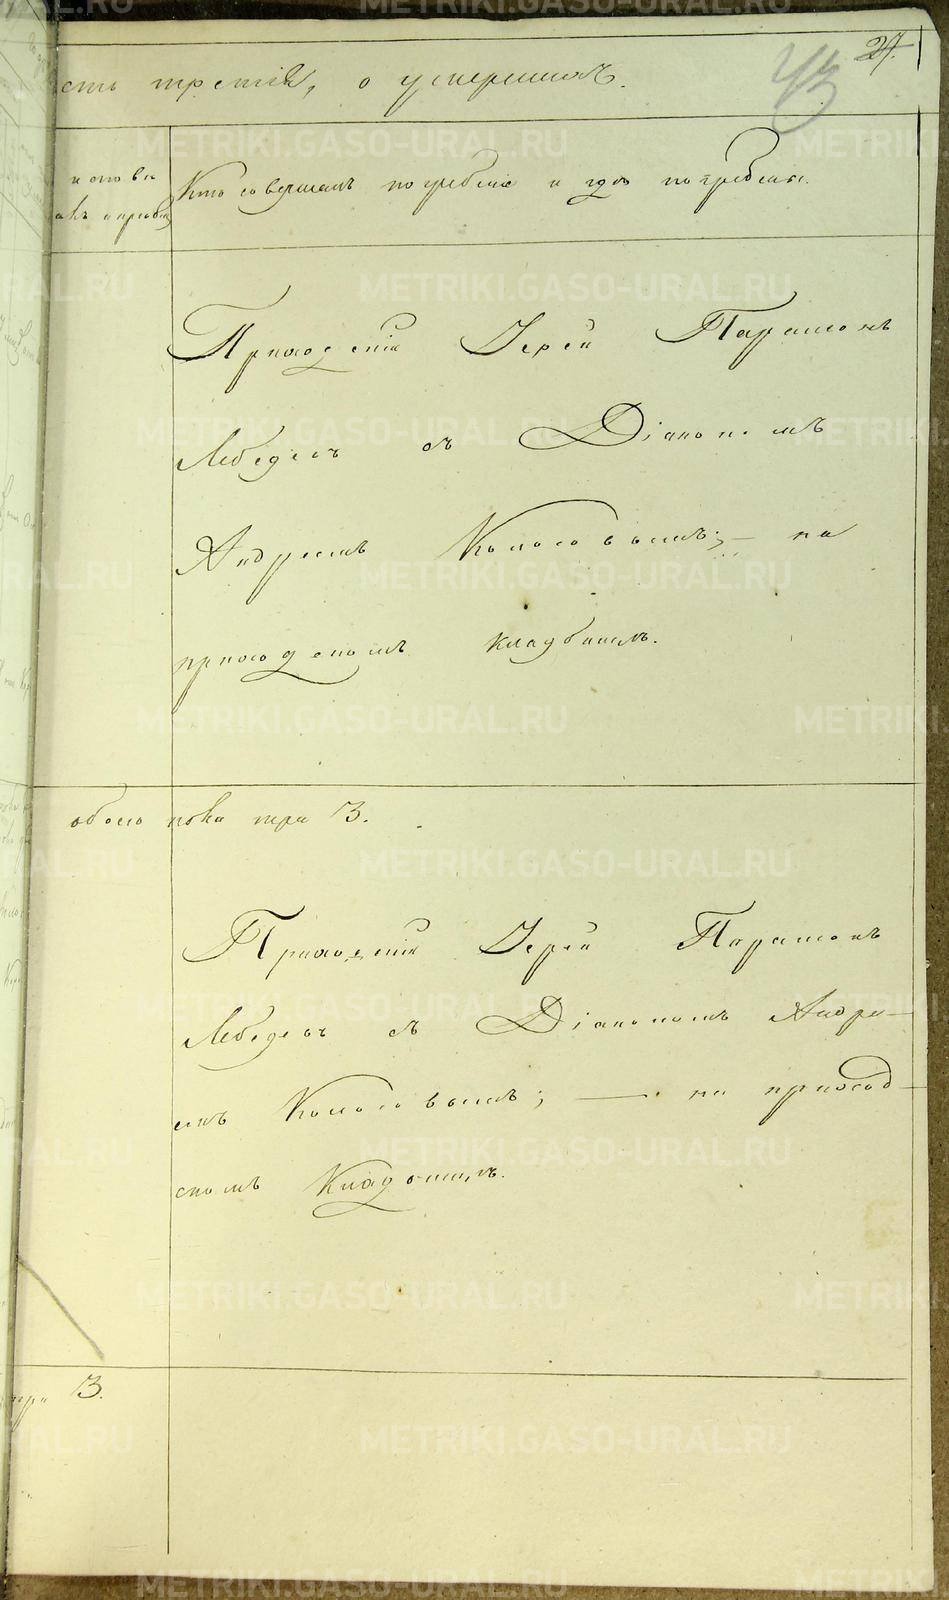 27.
43
сть третія, о умершихъ.
Кто совершалъ погребеніе и гдѣ погребены.
Приходскій Іерей Парамонъ
Лебедевъ съ Діакономъ
Андреемъ Колосовымъ; — на
приходскомъ кладбищѣ.
обоего пола три 3.
Приходскій Іерей Парамонъ
Лебедевъ съ Діакономъ Андре-
емъ Колосовымъ; — на приход-
скомъ Кладбищѣ.
три 3.
METRIKI.GASO-URAL.RU